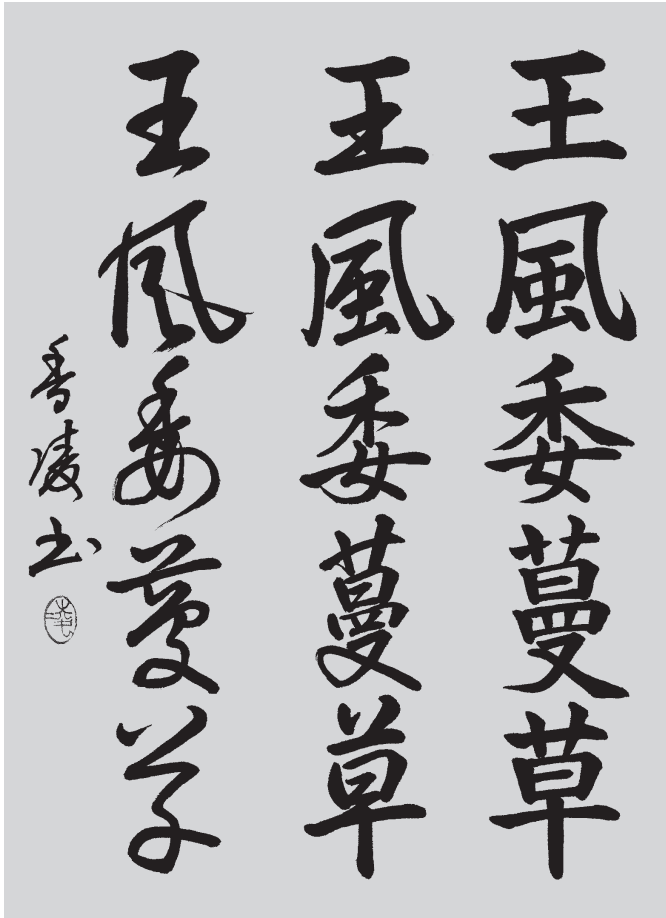 王風委蔓草
王風委蔓草
王風委蔓草
香凌书